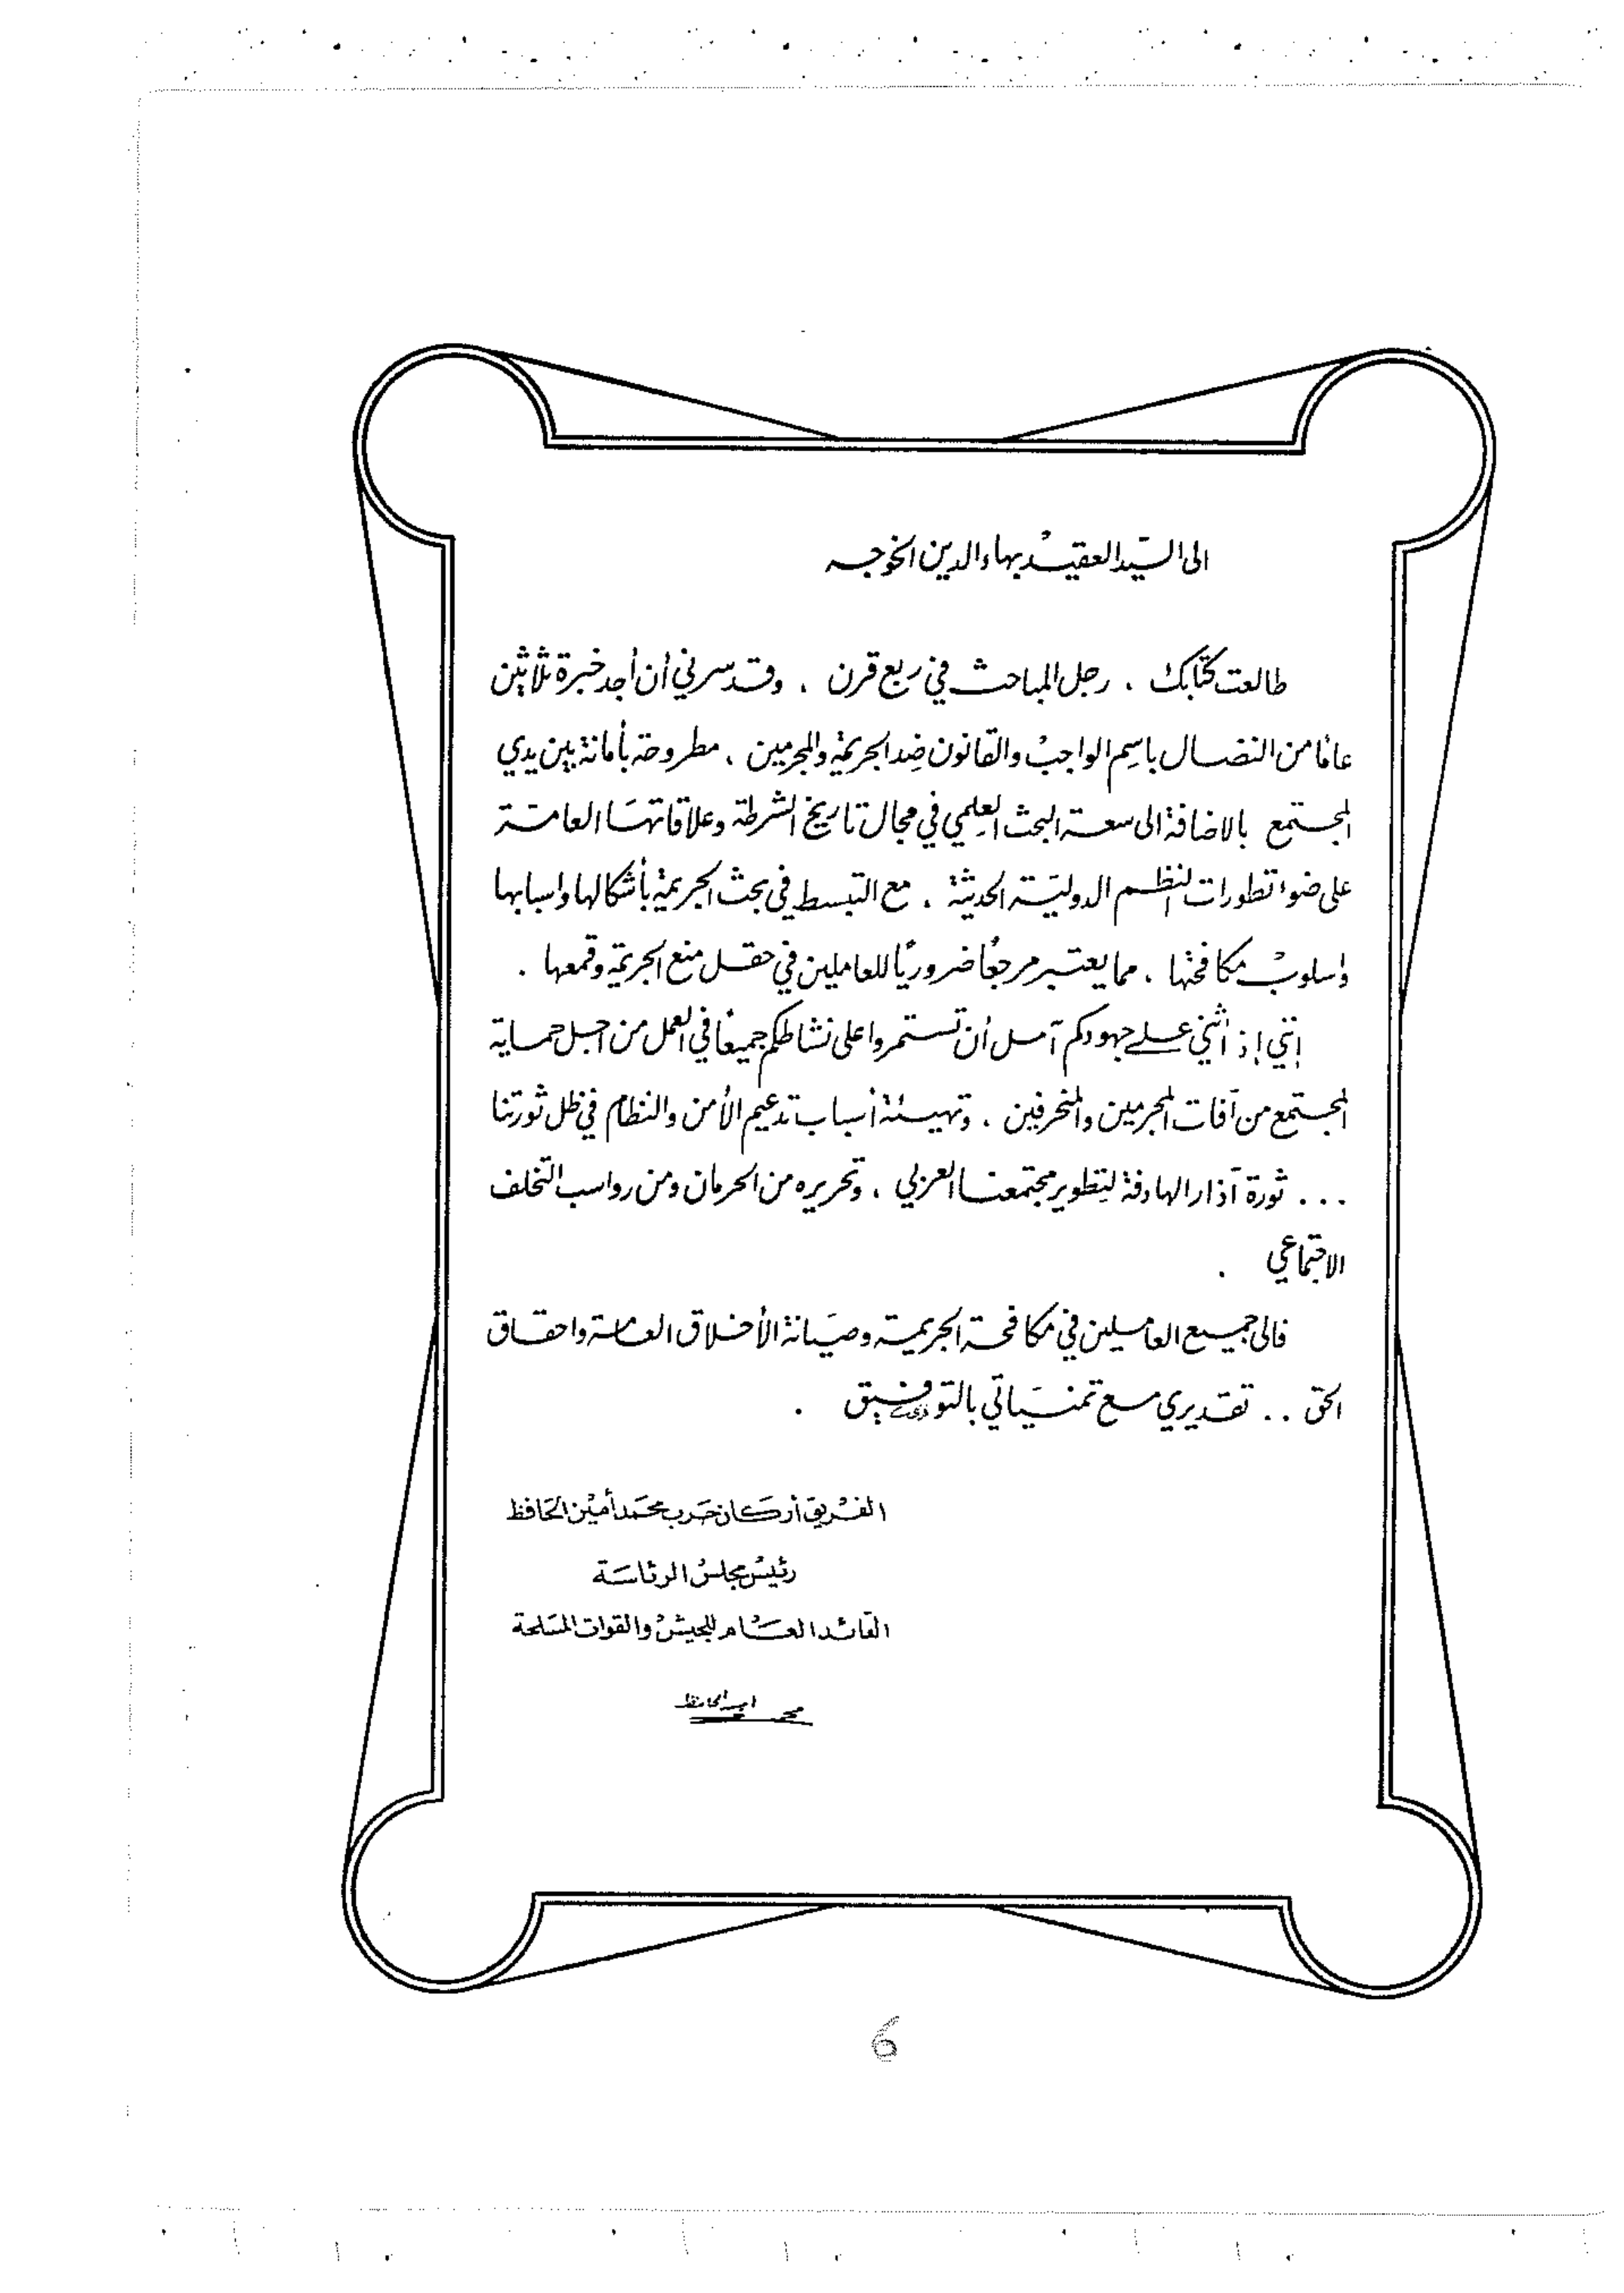 الى السيد العقيد بهاء الدين الخوجه
طالعت كتابك ، رجل المباحث في ربع قرن ، وقد سرني أن أجد خبرة ثلاثين
عامًا من النضال باسم الواجب والقانون ضد الجريمة والمجرمين ، مطروحة بأمانة بين يدي
المجتمع بالاضافة الى سعة البحث العلمي في مجال تاريخ الشرطة وعلاقاتها العامة
على ضوء تطورات النظم الدولية الحديثة ، مع التبسط في بحث الجريمة بأشكالها وأسبابها
وأسلوب مكافحتها ، مما يعتبر مرجعًا ضروريًا للعاملين في حقل منع الجريمة وقمعها .
إنني إذ أثني على جهودكم آمل أن تستمروا على نشاطكم جميعًا في العمل من اجل حماية
المجتمع من آفات المجرمين والمنحرفين ، وتهيئة أسباب تدعيم الأمن والنظام في ظل ثورتنا
... ثورة آذار الهادفة لتطوير مجتمعنا العربي ، وتحريره من الحرمان ومن رواسب التخلف
الاجتماعي .
فالى جميع العاملين في مكافحة الجريمة وصيانة الأخلاق العامة واحقاق
الحق .. تقديري مع تمنياتي بالتوفيق .
الفريق أركان حرب محمد أمين الحافظ
رئيس مجلس الرئاسة
القائد العام للجيش والقوات المسلحة
محمد أمين الحافظ
6